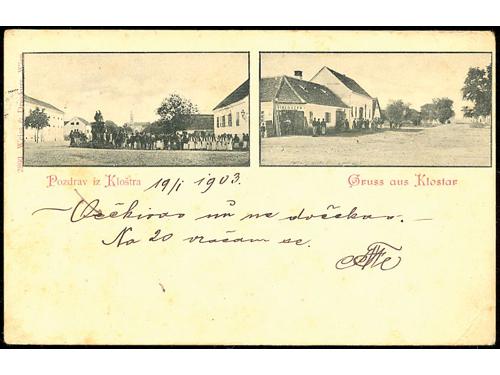 Pozdrav iz Kloštra
Gruss aus Klostar
19/I 1903.
Očekivao na ne dočekao.
Na 20 vraćam se.